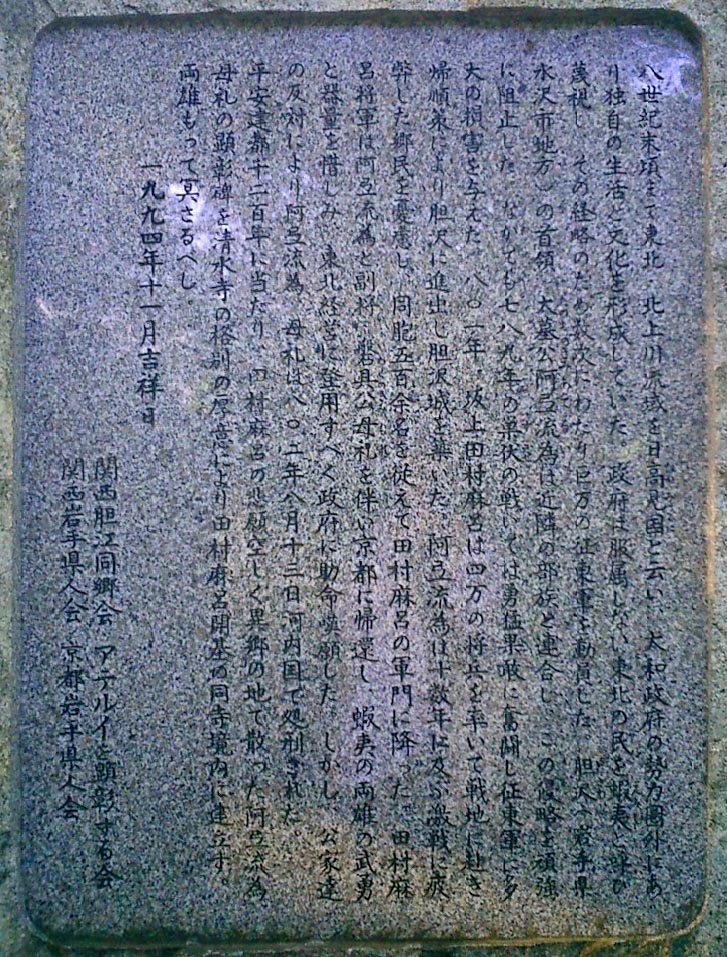 八世紀末頃まで東北・北上川流域を日高見国と云い、大和政府の勢力圏外にあ
り独自の生活と文化を形成していた。政府は服属しない東北の民を蝦夷と呼び
蔑視し、その経略のため数次にわたり巨万の征東軍を動員した。胆沢(岩手県
水沢市地方)の首領、大墓公阿弖流為は近隣の部族と連合し、この侵略を頑強
に阻止した。なかでも七八九年の巣伏の戦いでは勇猛果敢に奮闘し征東軍に多
大の損害を与えた。八〇一年、坂上田村麻呂は四万の将兵を率いて戦地に赴き
帰順策により胆沢に進出し胆沢城を築いた。阿弖流為は十数年に及ぶ激戦に疲
弊した郷民を憂慮し、同胞五百余名を従えて田村麻呂の軍門に降った。田村麻
呂将軍は阿弖流為と副将・磐具公母礼を伴い京都に帰還し、蝦夷の両雄の武勇
と器量を惜しみ、東北経営に登用すべく政府に助命嘆願した。しかし、公家達
の反対により阿弖流為、母礼は八〇二年八月十三日河内国で処刑された。
平安建都千二百年に当たり、田村麻呂の悲願空しく異郷の地で散った阿弖流為
母礼の顕彰碑を清水寺の格別の厚意により田村麻呂開基の同寺境内に建立す。
両雄もって冥さるべし
一九九四年十一月吉祥日
関西胆江同郷会・アテルイを顕彰する会
関西岩手県人会・京都岩手県人会